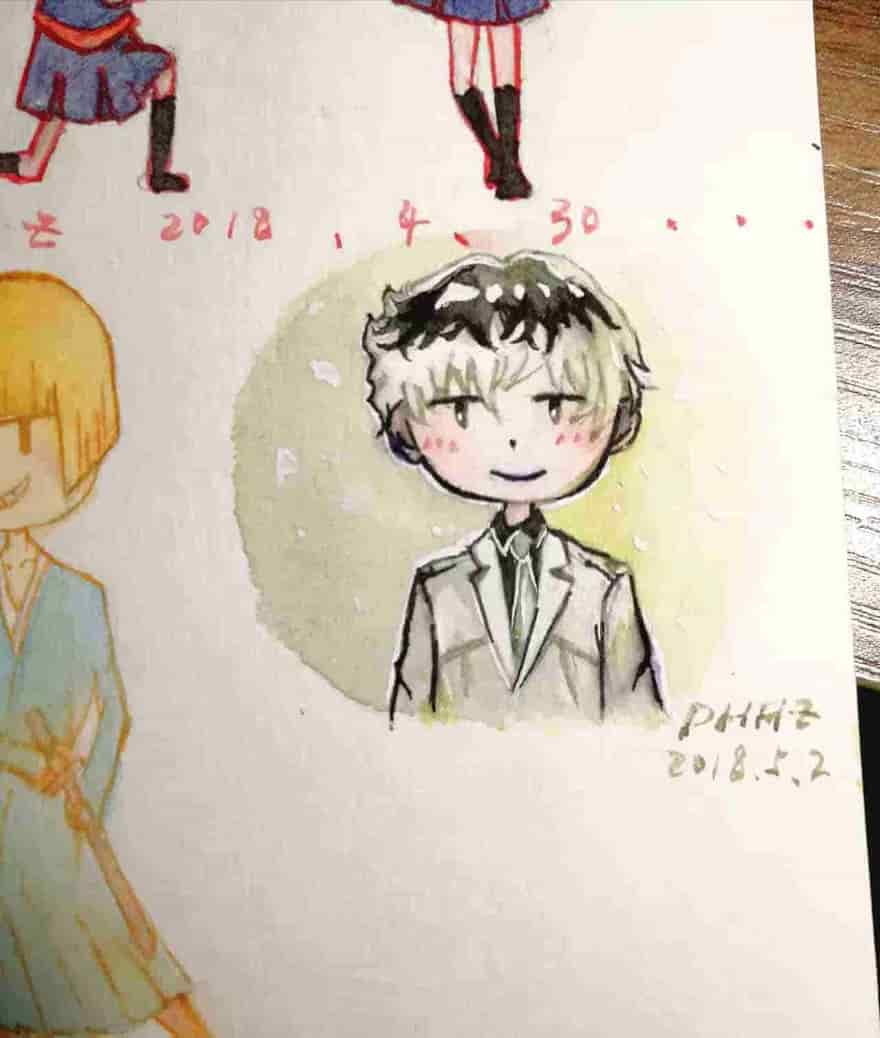 z 2018、4、30・・・
DHHZ
2018.5、2